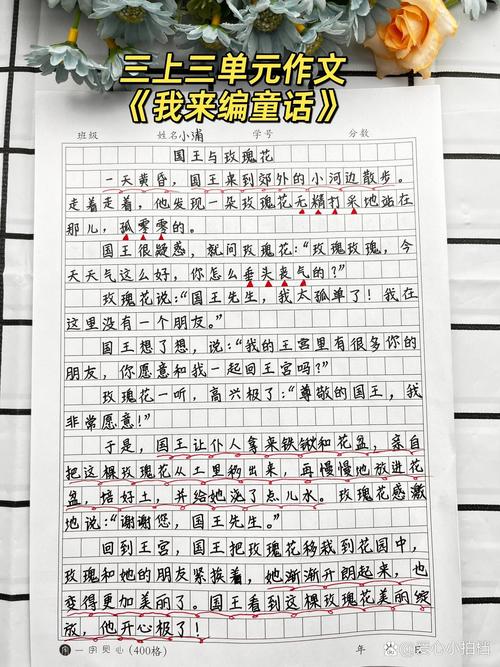 三上三单元作文
《我来编童话》
班级 姓名小浦 学号 分数
国王与玫瑰花
一天黄昏，国王来到郊外的小河边散步。
走着走着，他发现一朵玫瑰花无精打采地站在
那儿，孤零零的。
国王很疑惑，就问玫瑰花：“玫瑰玫瑰，今
天天气这么好，你怎么垂头丧气的？”
玫瑰花说：“国王先生，我太孤单了！我在
这里没有一个朋友。”
国王想了想，说：“我的王宫里有很多你的
朋友，你愿意和我一起回王宫吗？”
玫瑰花一听，高兴极了：“尊敬的国王，我
非常愿意！”
于是，国王让仆人拿来铁锹和花盆，亲自
把这棵玫瑰花从土里移出来，再慢慢地放进花
盆，培好土，并给她浇了点儿水。玫瑰花感激
地说：“谢谢您，国王先生。”
回到王宫，国王把玫瑰花移栽到花园中，
玫瑰和她的朋友紧挨着，她渐渐开朗起来，也
变得更加美丽了。国王看到这棵玫瑰花美丽绽
放，他开心极了！
一字见心（400格） 年
爱心小拍档